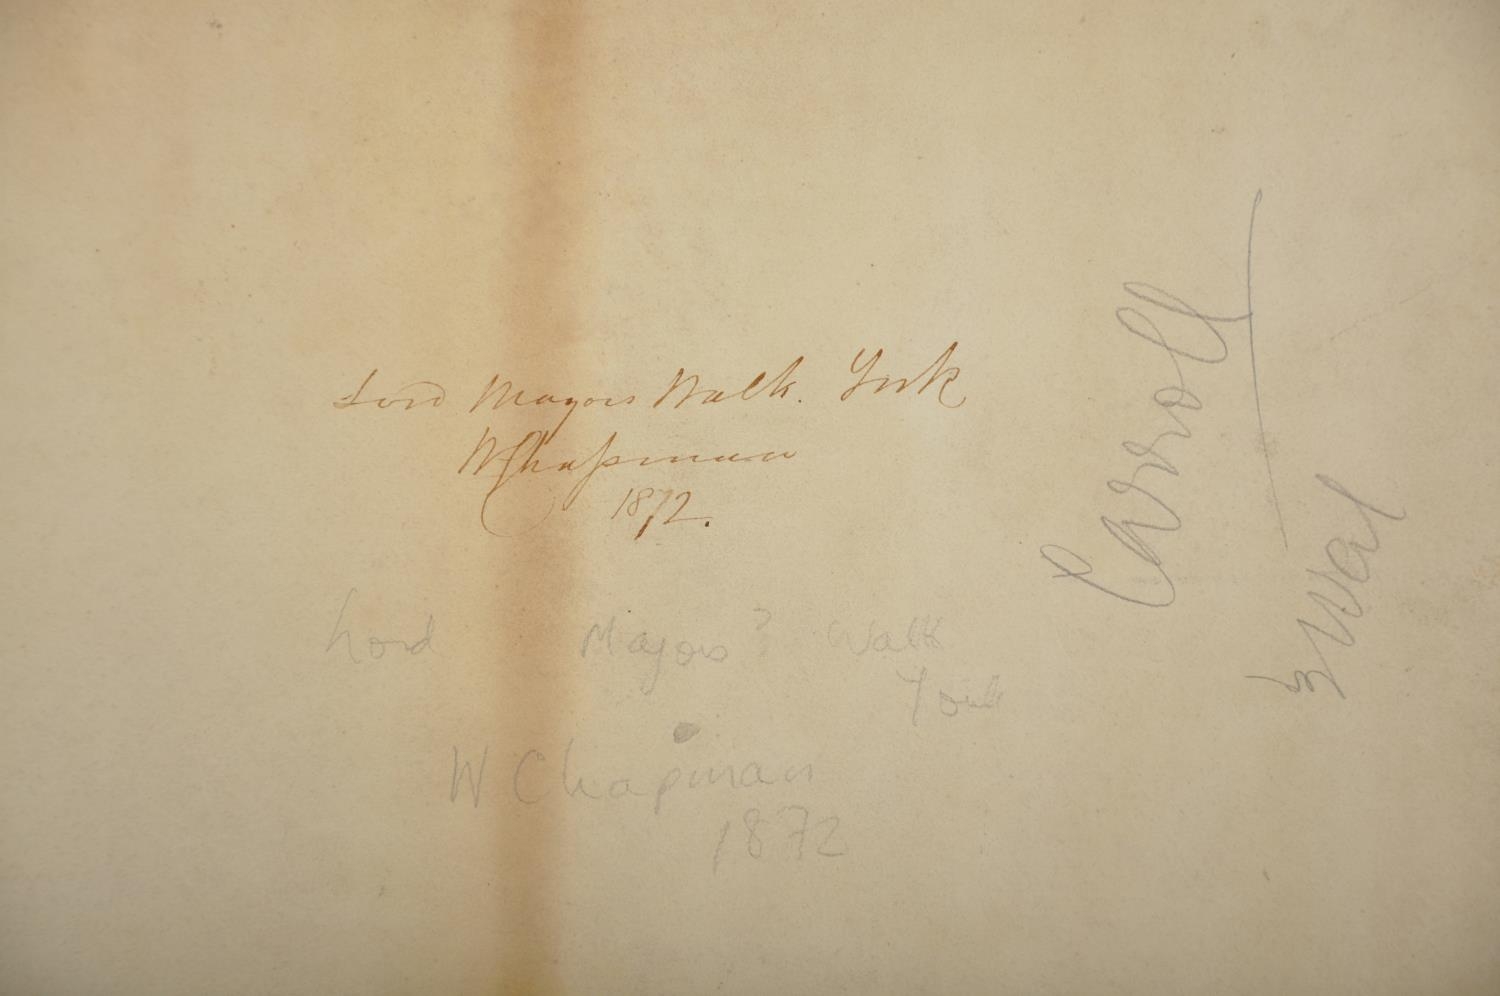 Lord Mayors Walk. York
WChapman
1872.
Lord Mayors? Walk
York
W Chapman
1872
Carroll
3 Wal